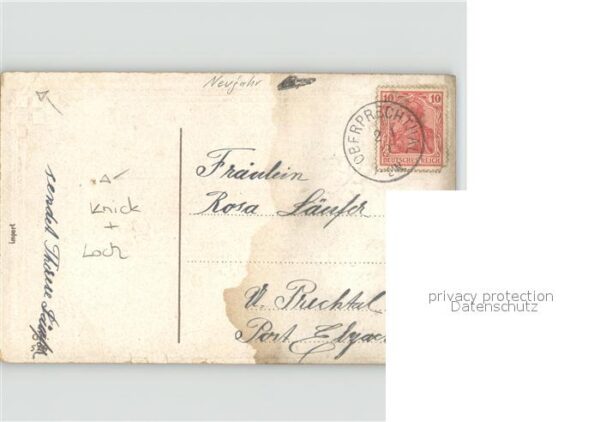 Neujahr
10 10
DEUTSCHES REICH
OBERPRECHTAL
Fräulein
Rosa Läufer
U. Prechtal
Post Elzach
Knick
+
Loch
Import
sendet Therese
privacy protection
Datenschutz